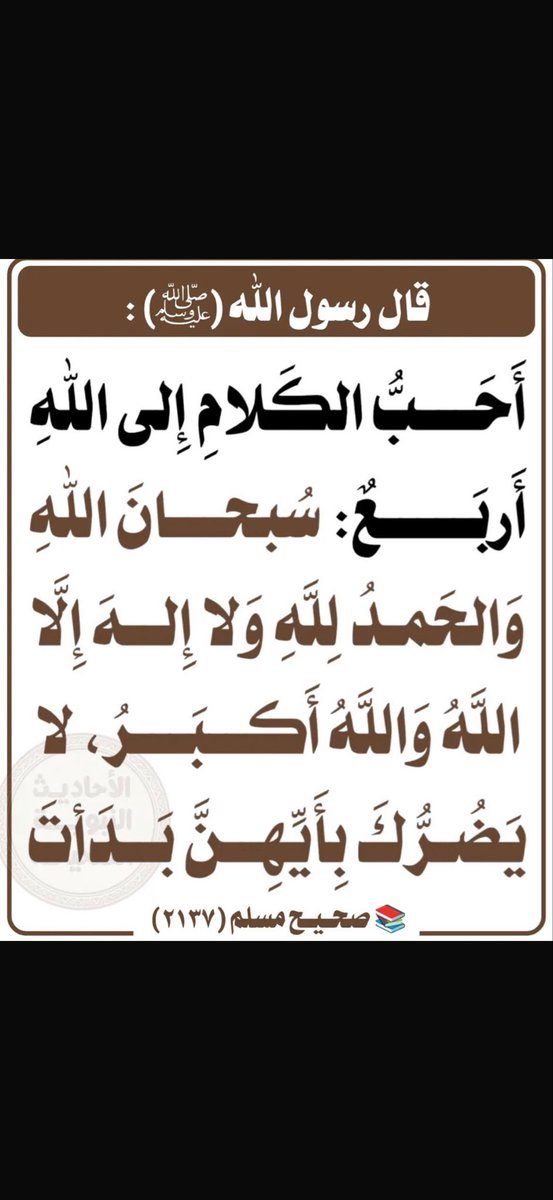 قال رسول الله (ﷺ) :
أَحَـــبُّ الكَلامِ إِلى اللهِ
أَربَـــعٌ: سُبحـــانَ اللهِ
وَالحَمدُ لِلَّهِ وَلا إِلــهَ إِلَّا
اللَّهُ وَاللَّهُ أَكــبَـــرُ، لا
يَضُرُّكَ بِأَيِّهِــنَّ بَــدَأتَ
📚 صحيح مسلم (٢١٣٧)
الأحاديث
النبوية